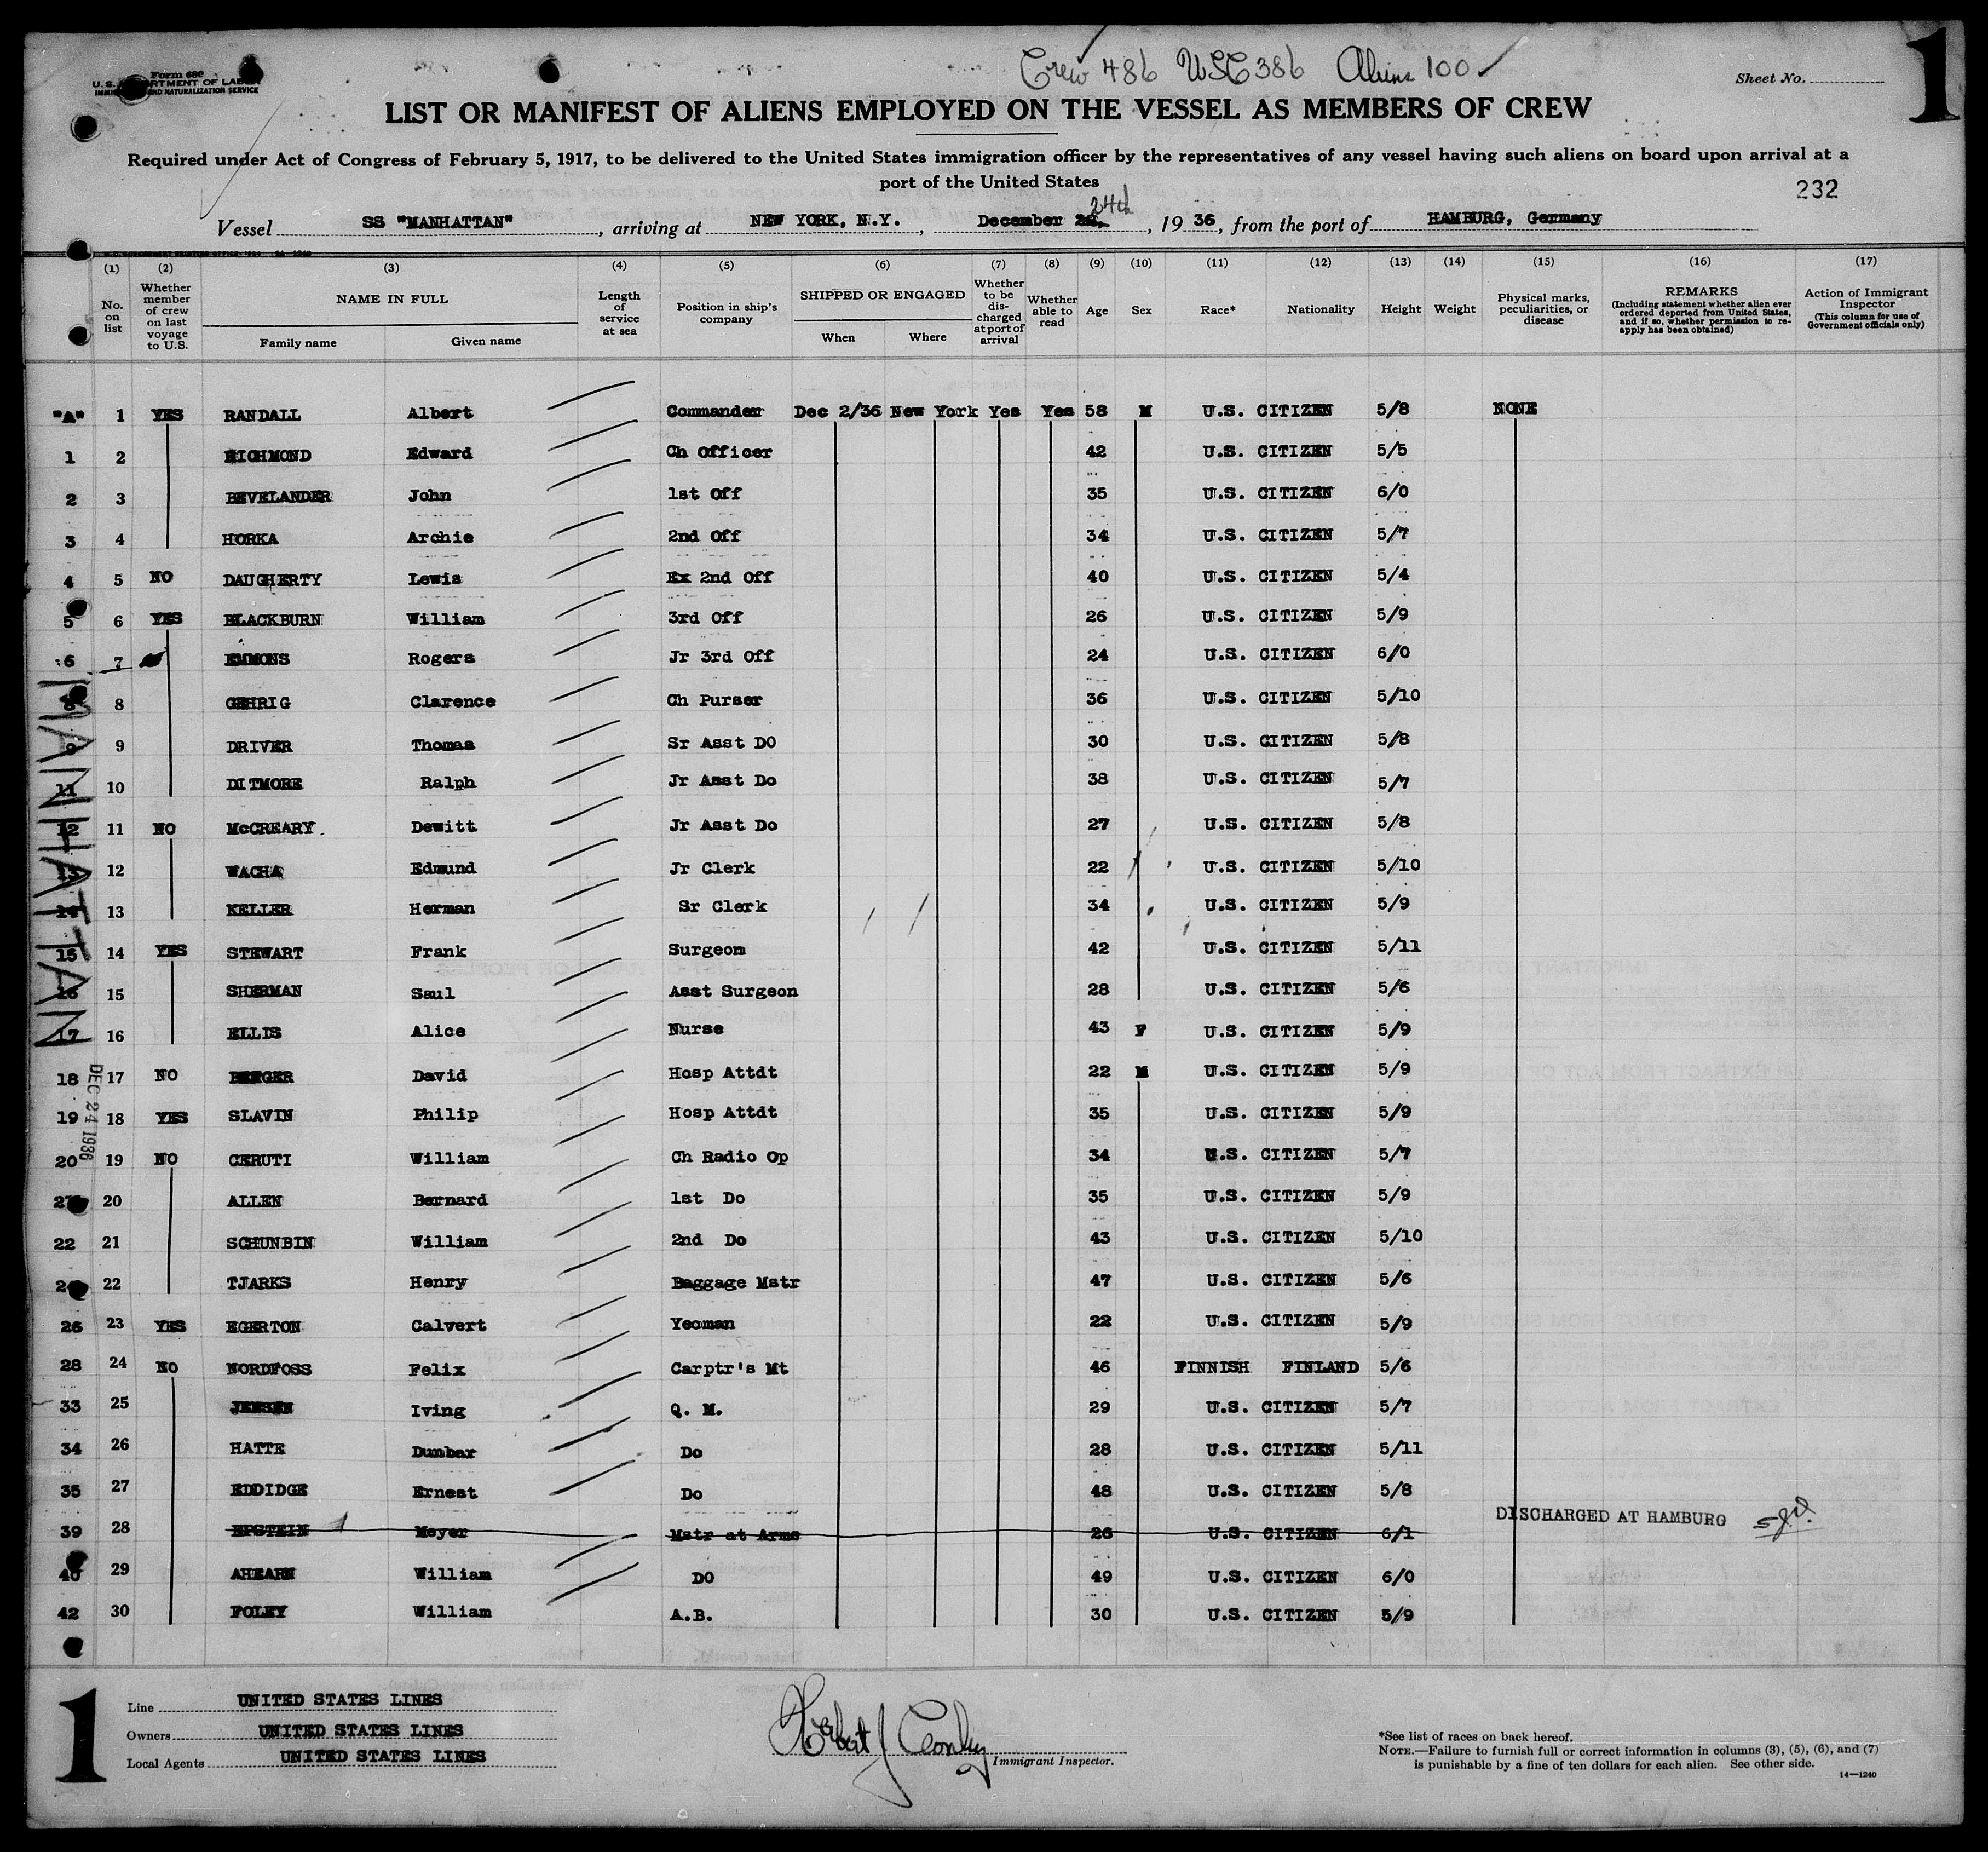 Crew 486 USC 386 Aliens 100 ✓
Form 680
U. S. DEPARTMENT OF LABOR
IMMIGRATION AND NATURALIZATION SERVICE
Sheet No.
1
LIST OR MANIFEST OF ALIENS EMPLOYED ON THE VESSEL AS MEMBERS OF CREW
Required under Act of Congress of February 5, 1917, to be delivered to the United States immigration officer by the representatives of any vessel having such aliens on board upon arrival at a
port of the United States
232
24th
Vessel SS "MANHATTAN", arriving at NEW YORK, N.Y., December, 19 36, from the port of HAMBURG, Germany
(1) (2) (3) (4) (5) (6) (7) (8) (9) (10) (11) (12) (13) (14) (15) (16) (17)
No. on list
Whether member of crew on last voyage to U.S.
NAME IN FULL
Family name Given name
Length of service at sea
Position in ship's company
SHIPPED OR ENGAGED
When Where
Whether to be discharged at port of arrival
Whether able to read
Age
Sex
Race*
Nationality
Height
Weight
Physical marks, peculiarities, or disease
REMARKS
(Including statement whether alien ever ordered deported from United States, and if so, whether permission to reapply has been obtained)
Action of Immigrant Inspector
(This column for use of Government officials only)
"A" 1 YES RANDALL Albert Commander Dec 2/36 New York Yes Yes 58 M U.S. CITIZEN 5/8 NONE
1 2 RICHMOND Edward Ch Officer 42 U.S. CITIZEN 5/5
2 3 BEVELANDER John 1st Off 35 U.S. CITIZEN 6/0
3 4 HORKA Archie 2nd Off 34 U.S. CITIZEN 5/7
4 5 NO DAUGHERTY Lewis Ex 2nd Off 40 U.S. CITIZEN 5/4
5 6 YES BLACKBURN William 3rd Off 26 U.S. CITIZEN 5/9
6 7 EMMONS Rogers Jr 3rd Off 24 U.S. CITIZEN 6/0
8 8 GEHRIG Clarence Ch Purser 36 U.S. CITIZEN 5/10
9 9 DRIVER Thomas Sr Asst DO 30 U.S. CITIZEN 5/8
11 10 DITMORE Ralph Jr Asst Do 38 U.S. CITIZEN 5/7
12 11 NO McCREARY. Dewitt Jr Asst Do 27 U.S. CITIZEN 5/8
13 12 WACHA Edmund Jr Clerk 22 U.S. CITIZEN 5/10
14 13 KELLER Herman Sr Clerk 34 U.S. CITIZEN 5/9
15 14 YES STEWART Frank Surgeon 42 U.S. CITIZEN 5/11
16 15 SHERMAN Saul Asst Surgeon 28 U.S. CITIZEN 5/6
17 16 ELLIS Alice Nurse 43 F U.S. CITIZEN 5/9
18 17 NO BERGER David Hosp Attdt 22 M U.S. CITIZEN 5/9
19 18 YES SLAVIN Philip Hosp Attdt 35 U.S. CITIZEN 5/9
20 19 NO CERUTI William Ch Radio Op 34 U.S. CITIZEN 5/7
20 ALLEN Bernard 1st Do 35 U.S. CITIZEN 5/9
22 21 SCHUNBIN William 2nd Do 43 U.S. CITIZEN 5/10
22 TJARKS Henry Baggage Mstr 47 U.S. CITIZEN 5/6
26 23 YES EGERTON Calvert Yeoman 22 U.S. CITIZEN 5/9
28 24 NO NORDFOSS Felix Carptr's Mt 46 FINNISH FINLAND 5/6
33 25 JENSEN Iving Q. M. 29 U.S. CITIZEN 5/7
34 26 HATTE Dunbar Do 28 U.S. CITIZEN 5/11
35 27 EDDIDGE Ernest Do 48 U.S. CITIZEN 5/8
39 28 EPSTEIN Meyer Mstr at Arms 26 U.S. CITIZEN 6/1 DISCHARGED AT HAMBURG
40 29 AHEARN William DO 49 U.S. CITIZEN 6/0
42 30 FOLEY William A.B. 30 U.S. CITIZEN 5/9
MANHATTAN
DEC 24 1936
1
Line UNITED STATES LINES
Owners UNITED STATES LINES
Local Agents UNITED STATES LINES
Herbert J Conley
Immigrant Inspector.
*See list of races on back hereof.
NOTE.—Failure to furnish full or correct information in columns (3), (5), (6), and (7)
is punishable by a fine of ten dollars for each alien. See other side.
14—1240